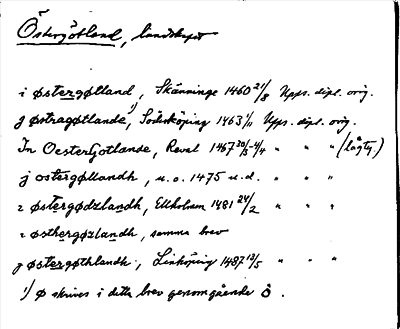 Östergötland, landskapet
i østergøtland, Skänninge 1460 21/8 Upps. dipl. orig.
J østragøtlande, 1) Söderköping 1463 1/11 Upps. dipl. orig.
In Oestergotlande, Reval 1467 20/3-4/4 " " " (lågty.)
j ostergøtlandh, u.o. 1475 u.d. " " "
i østergødzlandh, Ekholmen 1481 24/2 " " "
i østhergøzlandh, samma brev
j østergøthlandh, Linköping 1487 13/5 " " "
1) ø skrives i detta brev genomgående ö.